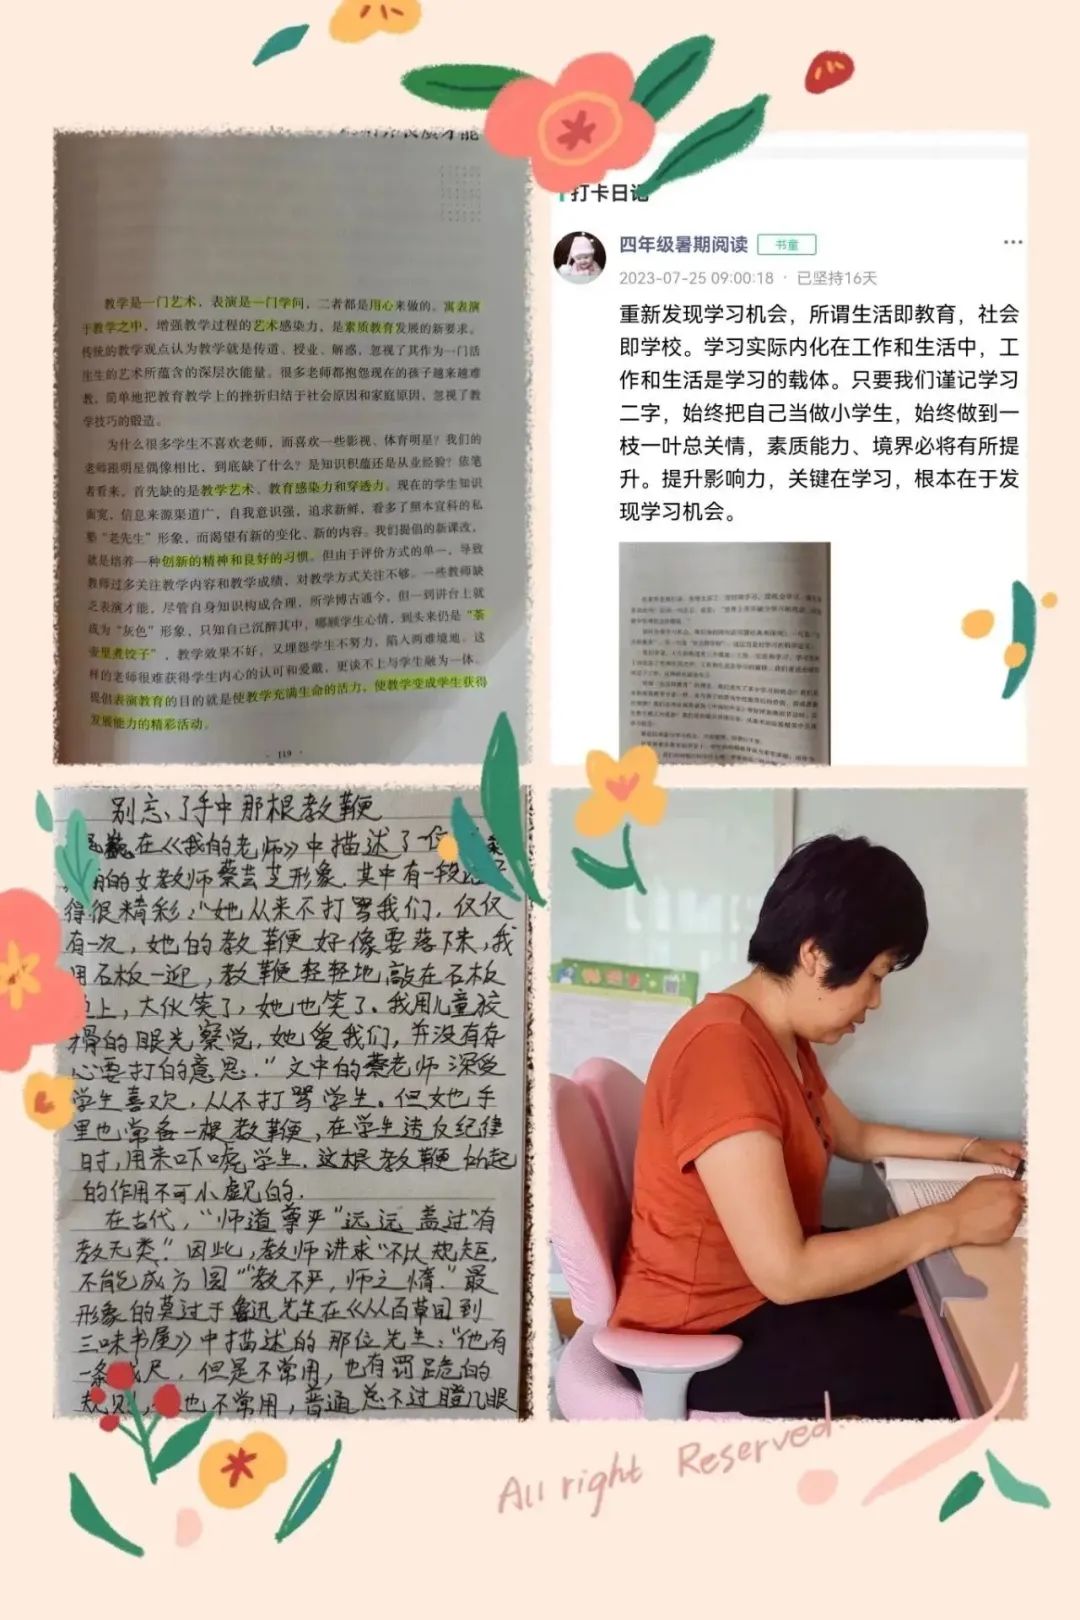 教学是一门艺术，表演是一门学问，二者都是用心来做的。寓表演
于教学之中，增强教学过程的艺术感染力，是素质教育发展的新要求。
传统的教学观点认为教学就是传道、授业、解惑，忽视了其作为一门活
生生的艺术所蕴含的深层次能量。很多老师都抱怨现在的孩子越来越难
教，简单地把教育教学上的挫折归结于社会原因和家庭原因，忽视了教
学技巧的锻造。
为什么很多学生不喜欢老师，而喜欢一些影视、体育明星？我们的
老师跟明星偶像相比，到底缺了什么？是知识积蕴还是从业经验？依笔
者看来，首先缺的是教学艺术、教育感染力和穿透力。现在的学生知识
面宽，信息来源渠道广，自我意识强，追求新鲜，看多了照本宣科的私
塾“老先生”形象，而渴望有新的变化、新的内容。我们提倡的新课改，
就是培养一种创新的精神和良好的习惯。但由于评价方式的单一，导致
教师过多关注教学内容和教学成绩，对教学方式关注不够。一些教师缺
乏表演才能，尽管自身知识构成合理，所学博古通今，但一到讲台上就
成为“灰色”形象，只知自己沉醉其中，哪顾学生心情，到头来仍是“茶
壶里煮饺子”，教学效果不好，又埋怨学生不努力，陷入两难境地。这
样的老师很难获得学生内心的认可和爱戴，更谈不上与学生融为一体。
提倡表演教育的目的就是使教学充满生命的活力，使教学变成学生获得
发展能力的精彩活动。
119
打卡日记
四年级暑期阅读 书童
2023-07-25 09:00:18 · 已坚持16天
重新发现学习机会，所谓生活即教育，社会
即学校。学习实际内化在工作和生活中，工
作和生活是学习的载体。只要我们谨记学习
二字，始终把自己当做小学生，始终做到一
枝一叶总关情，素质能力、境界必将有所提
升。提升影响力，关键在学习，根本在于发
现学习机会。
别忘了手中那根教鞭
巍在《我的老师》中描述了一位
的女教师蔡芸芝形象，其中有一段
得很精彩：“她从来不打骂我们，仅仅
有一次，她的教鞭好像要落下来，我
用石板一迎，教鞭轻轻地敲在石板
边上，大伙笑了，她也笑了。我用儿童狡
猾的眼光察觉，她爱我们，并没有存
心要打的意思。”文中的蔡老师深受
学生喜欢，从不打骂学生。但她手
里也常备一根教鞭，在学生违反纪律
时，用来吓唬学生，这根教鞭所起
的作用不可小觑的。
在古代，“师道尊严”远远盖过“有
教无类”因此，教师讲求“不以规矩，
不能成方圆”“教不严，师之惰。”最
形象的莫过于鲁迅先生在《从百草园到
三味书屋》中描述的那位先生：“他有
一条戒尺，但是不常用，也有罚跪的
规则，也不常用，普通总不过瞪几眼
All right Reserved.